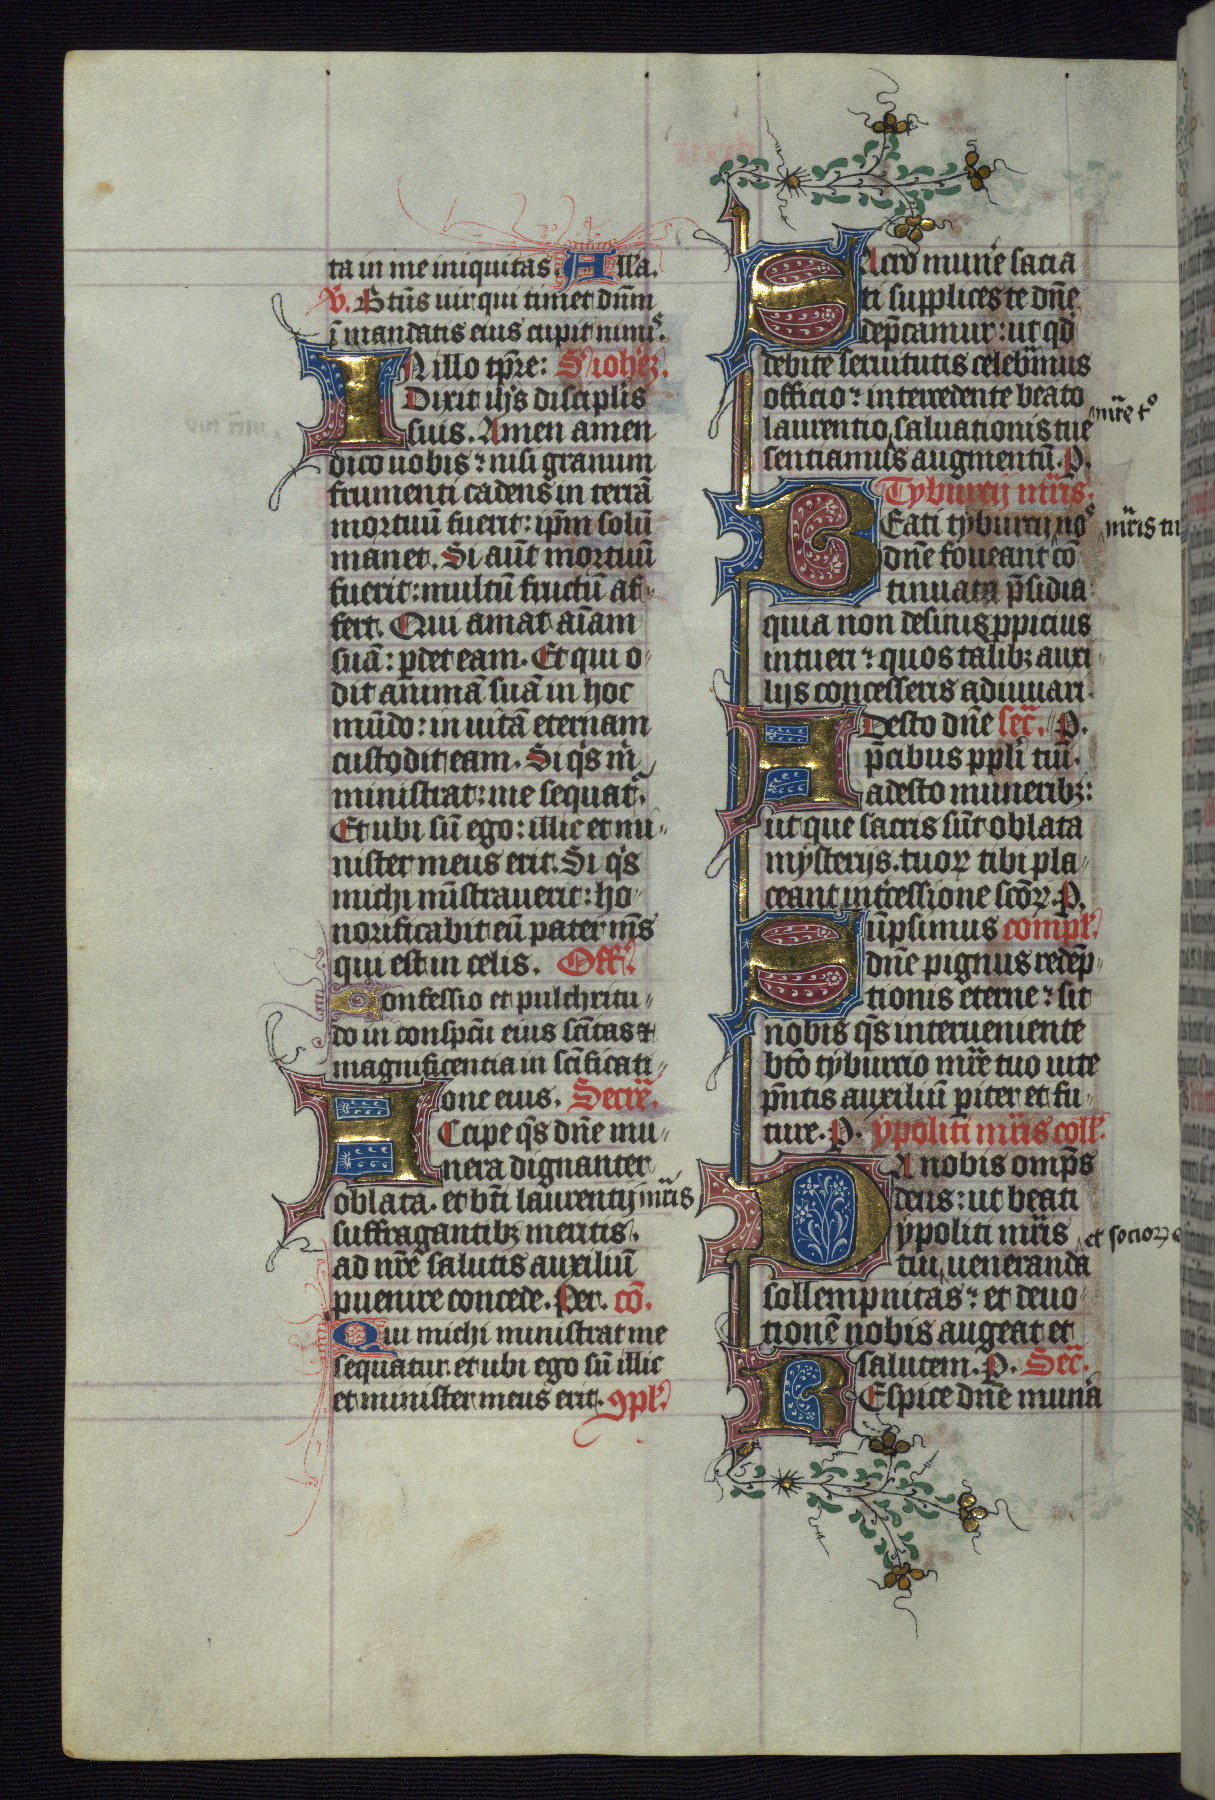 ta in me iniquitas. Alla.
V. Btūs uir qui timet dnm̄
ī mandatis eius cupit nimis.
IN illo tpr̄e: S iohēz.
Dixit ih̄s discip̄lis
suis. Amen amen
dico uobis: nisi granum
frumenti cadens in terrā
mortuū fuerit: ip̄m solū
manet. Si aut̄ mortuū
fuerit: multū fructū af-
fert. Qui amat aīam
suā: p̄det eam. Et qui o-
dit animā suā in hoc
mūdo: in uitā eternam
custodit eam. Si q̄s m̄
ministrat: me sequat̄.
Et ubi sū ego: illic et mi-
nister meus erit. Si q̄s
michi mīstrauerit: ho-
norificabit eū pater m̄s
qui est in celis. Off̄.
Confessio et pulchritu-
do in conspc̄u eius sc̄itas et
magnificentia in sc̄ificati-
one eius. Secr̄e.
ACcipe q̄s dn̄e mu-
nera dignanter
oblata. et bt̄i laurentij mr̄is
suffragantibꝫ meritis.
ad nr̄e salutis auxiliū
puenire concede. Per. cō.
Qui michi ministrat me
sequatur. et ubi ego sū illic
et minister meus erit. ꝯpl̄.
SAcro mun̄e sacia
ti supplices te dn̄e
dep̄camur: ut qd̄
debite seruitutis celebr̄mus
officio: intercedente beato
laurentio saluationis tue
mr̄e tº
sentiamus augmentū. P.
Tyburcij mr̄is.
BEati tyburcij nos
mr̄is tui
dn̄e foueant cō
tinuata p̄sidia:
quia non desinis ꝓpicius
intueri: quos talibꝫ auxi-
lijs concesseris adiuuari.
ADesto dn̄e secr̄. P.
p̄cibus ppl̄i tui.
adesto muneribꝫ:
ut que sacris sūt oblata
mysterijs. tuoꝝ tibi pla-
ceant int̄cessione sc̄oꝝ. P.
SUp̄simus compl̄.
dn̄e pignus redēp-
tionis eterne: sit
nobis q̄s interueniente
bt̄o tyburcio mr̄e tuo uite
p̄ntis auxiliū p̄iter et fu-
ture. P. ypoliti mr̄is coll̄.
DA nobis omp̄s
deus: ut beati
ypoliti mr̄is
et socioꝝ e
tui ueneranda
sollempnitas: et deuo-
tionē nobis augeat et
salutem. P. Secr̄.
REspice dn̄e mun̄a